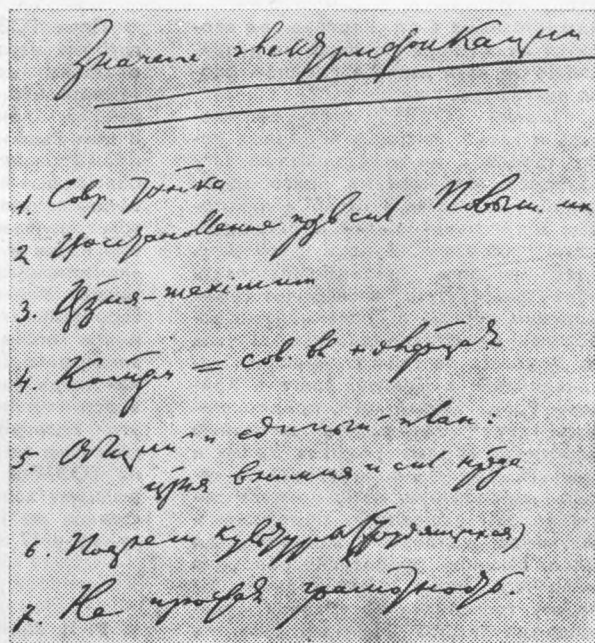 Значение электрификации
1. Совр. техника
2 Восстановление прзв сил. Повыш. их
3. Цзция – maximum
4. Коммзм = сов. вл + элкфция
5. Общий и единый план:
цзция внимния и сил нрда
6. Подъем культуры (трудящихся)
7. Не простая грамотность.